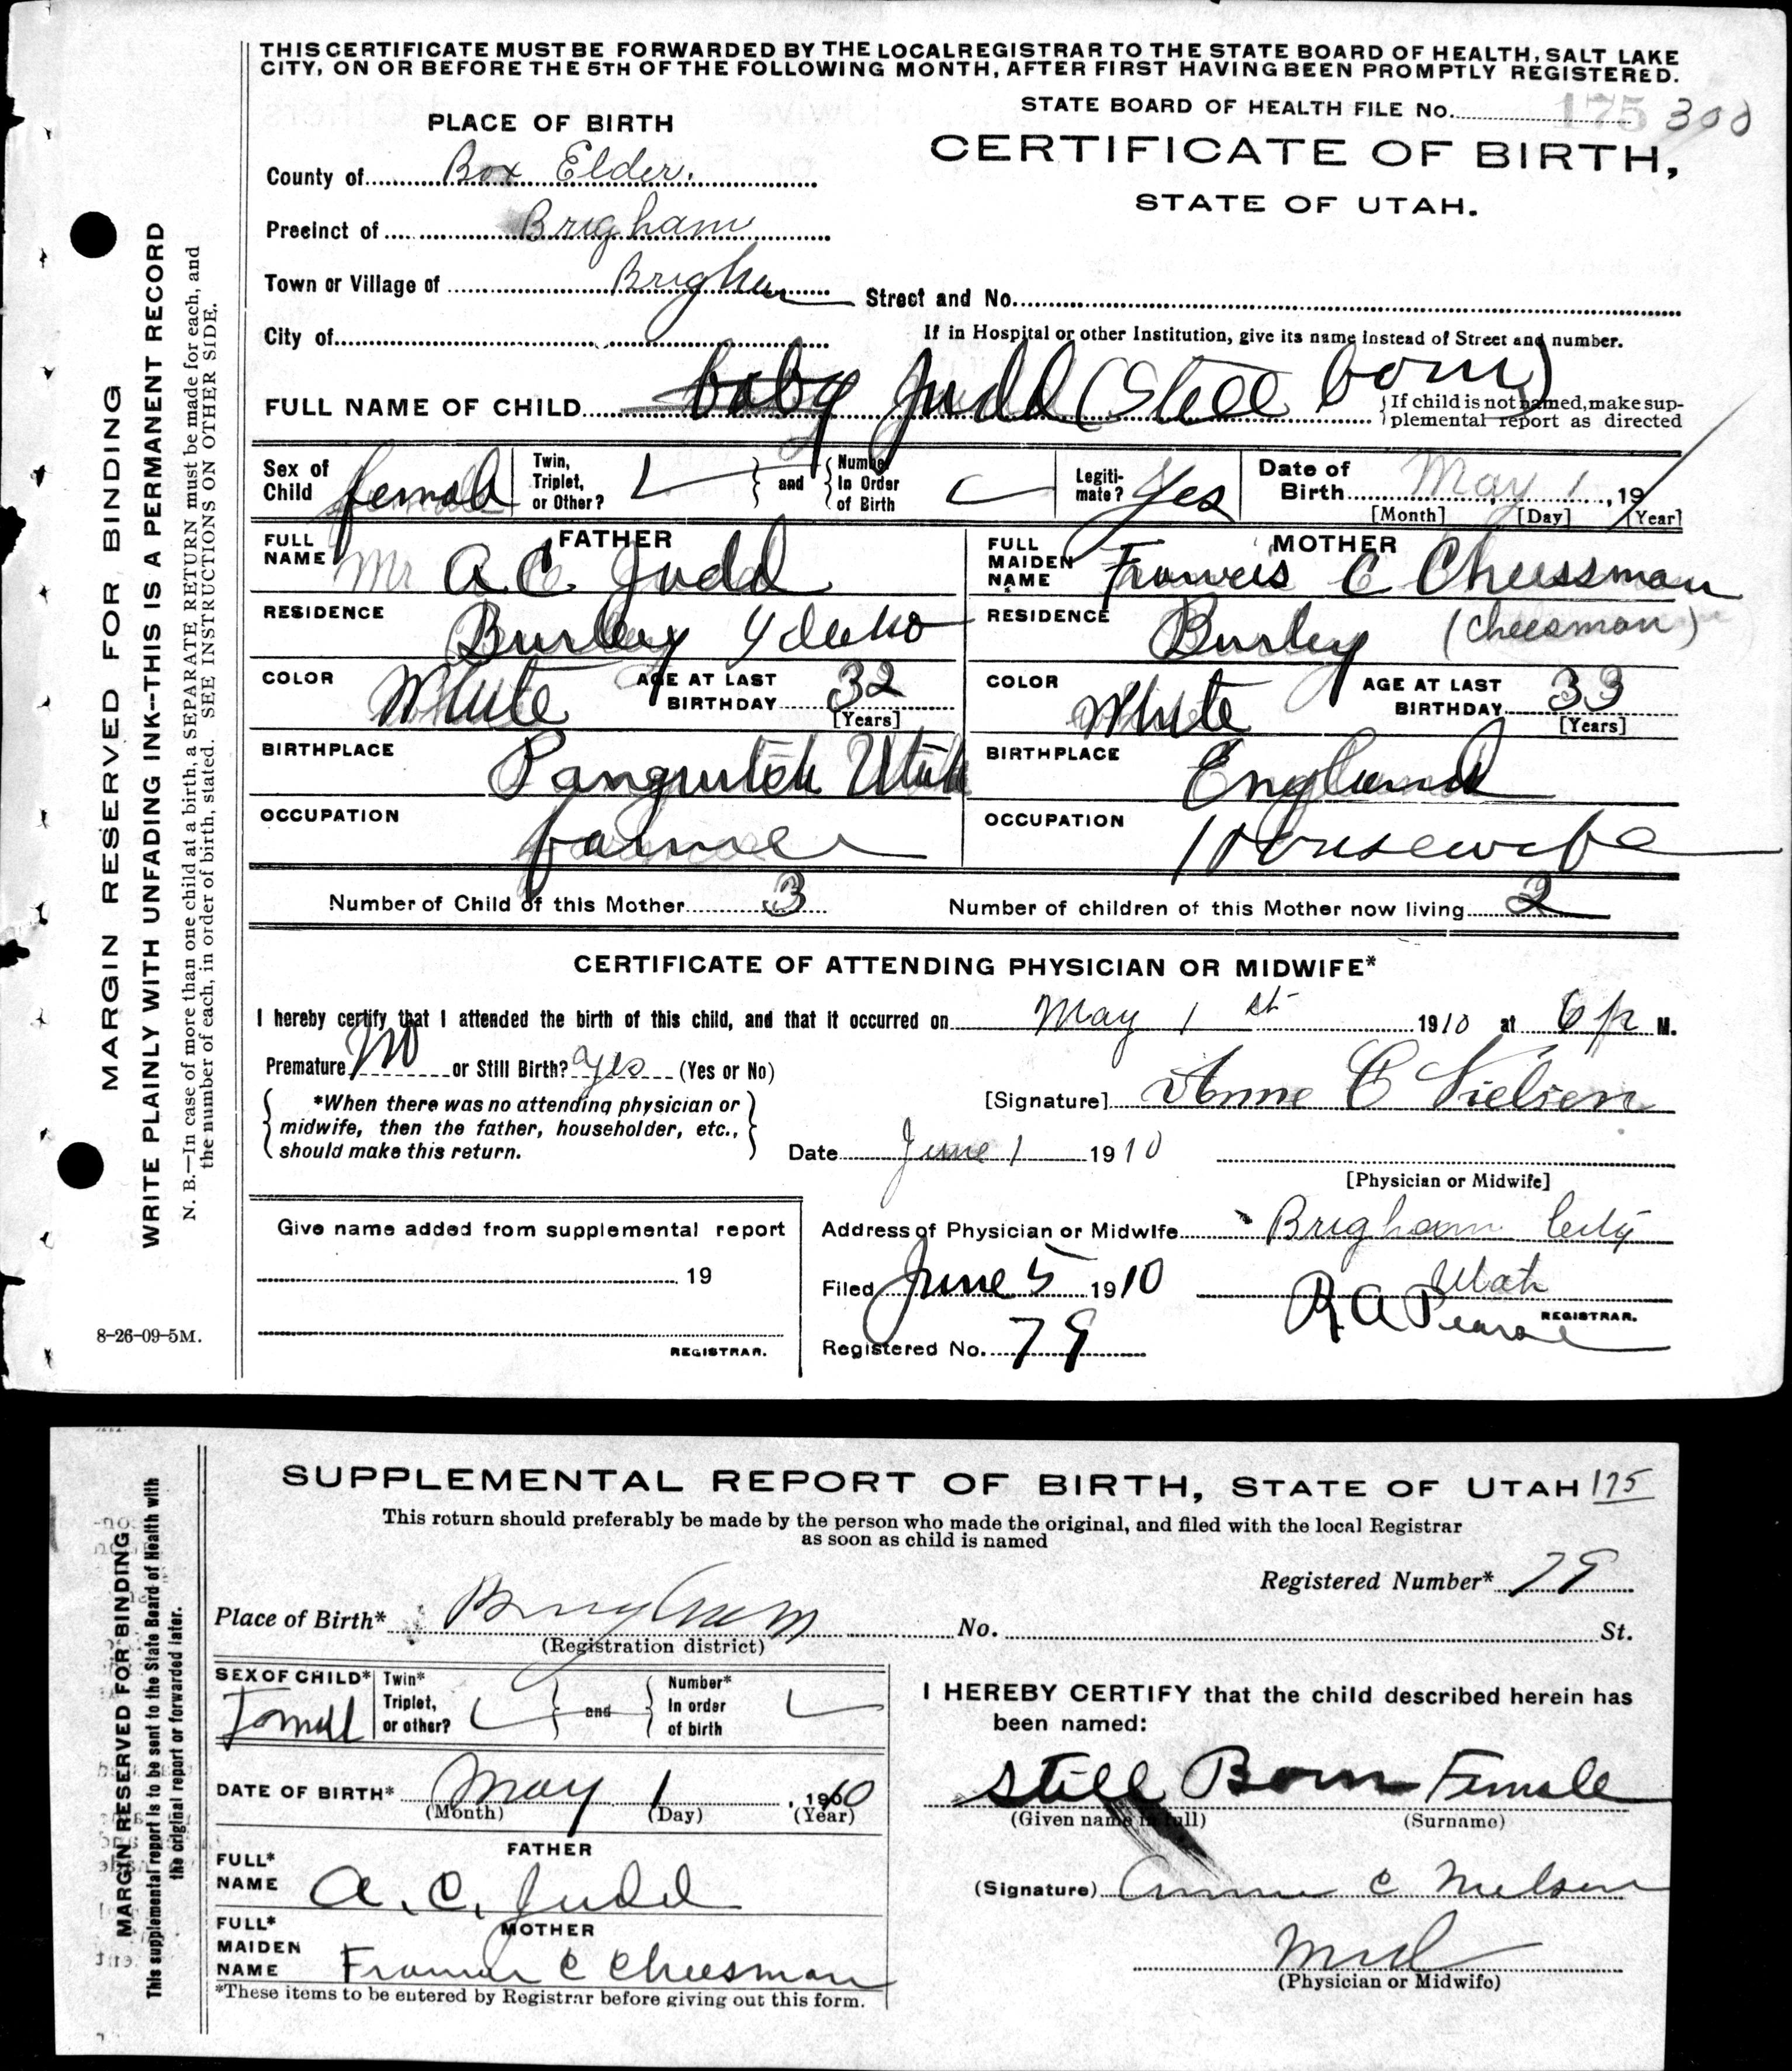 THIS CERTIFICATE MUST BE FORWARDED BY THE LOCAL REGISTRAR TO THE STATE BOARD OF HEALTH, SALT LAKE
CITY, ON OR BEFORE THE 5TH OF THE FOLLOWING MONTH, AFTER FIRST HAVING BEEN PROMPTLY REGISTERED.
STATE BOARD OF HEALTH FILE No. 175 300
PLACE OF BIRTH
CERTIFICATE OF BIRTH,
STATE OF UTAH.
County of Box Elder.
Precinct of Brigham
Town or Village of Brigham
Street and No.
City of
If in Hospital or other Institution, give its name instead of Street and number.
FULL NAME OF CHILD baby Judd (Still born)
If child is not named, make sup-
plemental report as directed
Sex of Child female
Twin, Triplet, or Other?
and
Number In Order of Birth
Legiti-mate? Yes
Date of Birth May 1, 19
[Month] [Day] [Year]
FATHER
FULL NAME Mr A C Judd
RESIDENCE Burley Idaho
COLOR White
AGE AT LAST BIRTHDAY 32
[Years]
BIRTHPLACE Panguitch Utah
OCCUPATION farmer
MOTHER
FULL MAIDEN NAME Francis C Cheesman
RESIDENCE Burley (Cheesman)
COLOR White
AGE AT LAST BIRTHDAY 33
[Years]
BIRTHPLACE England
OCCUPATION Housewife
Number of Child of this Mother 3
Number of children of this Mother now living 2
CERTIFICATE OF ATTENDING PHYSICIAN OR MIDWIFE*
I hereby certify that I attended the birth of this child, and that it occurred on May 1 st 1910 at 6 p M.
Premature No or Still Birth? yes (Yes or No)
*When there was no attending physician or
midwife, then the father, householder, etc.,
should make this return.
[Signature] Anne C Nielsen
Date June 1 1910
[Physician or Midwife]
Give name added from supplemental report
19
REGISTRAR.
Address of Physician or Midwife Brigham City
Utah
Filed June 5 1910
R A Pearse
REGISTRAR.
Registered No. 79
8-26-09-5M.
MARGIN RESERVED FOR BINDING
WRITE PLAINLY WITH UNFADING INK—THIS IS A PERMANENT RECORD
N. B.—In case of more than one child at a birth, a SEPARATE RETURN must be made for each, and
the number of each, in order of birth, stated. SEE INSTRUCTIONS ON OTHER SIDE.
SUPPLEMENTAL REPORT OF BIRTH, STATE OF UTAH 175
This return should preferably be made by the person who made the original, and filed with the local Registrar
as soon as child is named
Registered Number* 79
Place of Birth* Brigham No. St.
(Registration district)
SEX OF CHILD*
Twin* Triplet, or other?
and
Number* In order of birth
DATE OF BIRTH* May 1, 1910
(Month) (Day) (Year)
FATHER
FULL* NAME A. C. Judd
MOTHER
FULL* MAIDEN NAME Francis C Cheesman
*These items to be entered by Registrar before giving out this form.
I HEREBY CERTIFY that the child described herein has
been named:
Still Born Female
(Given name in full) (Surname)
(Signature) Anne C Nielsen
Mid
(Physician or Midwife)
MARGIN RESERVED FOR BINDING
This supplemental report is to be sent to the State Board of Health with
the original report or forwarded later.